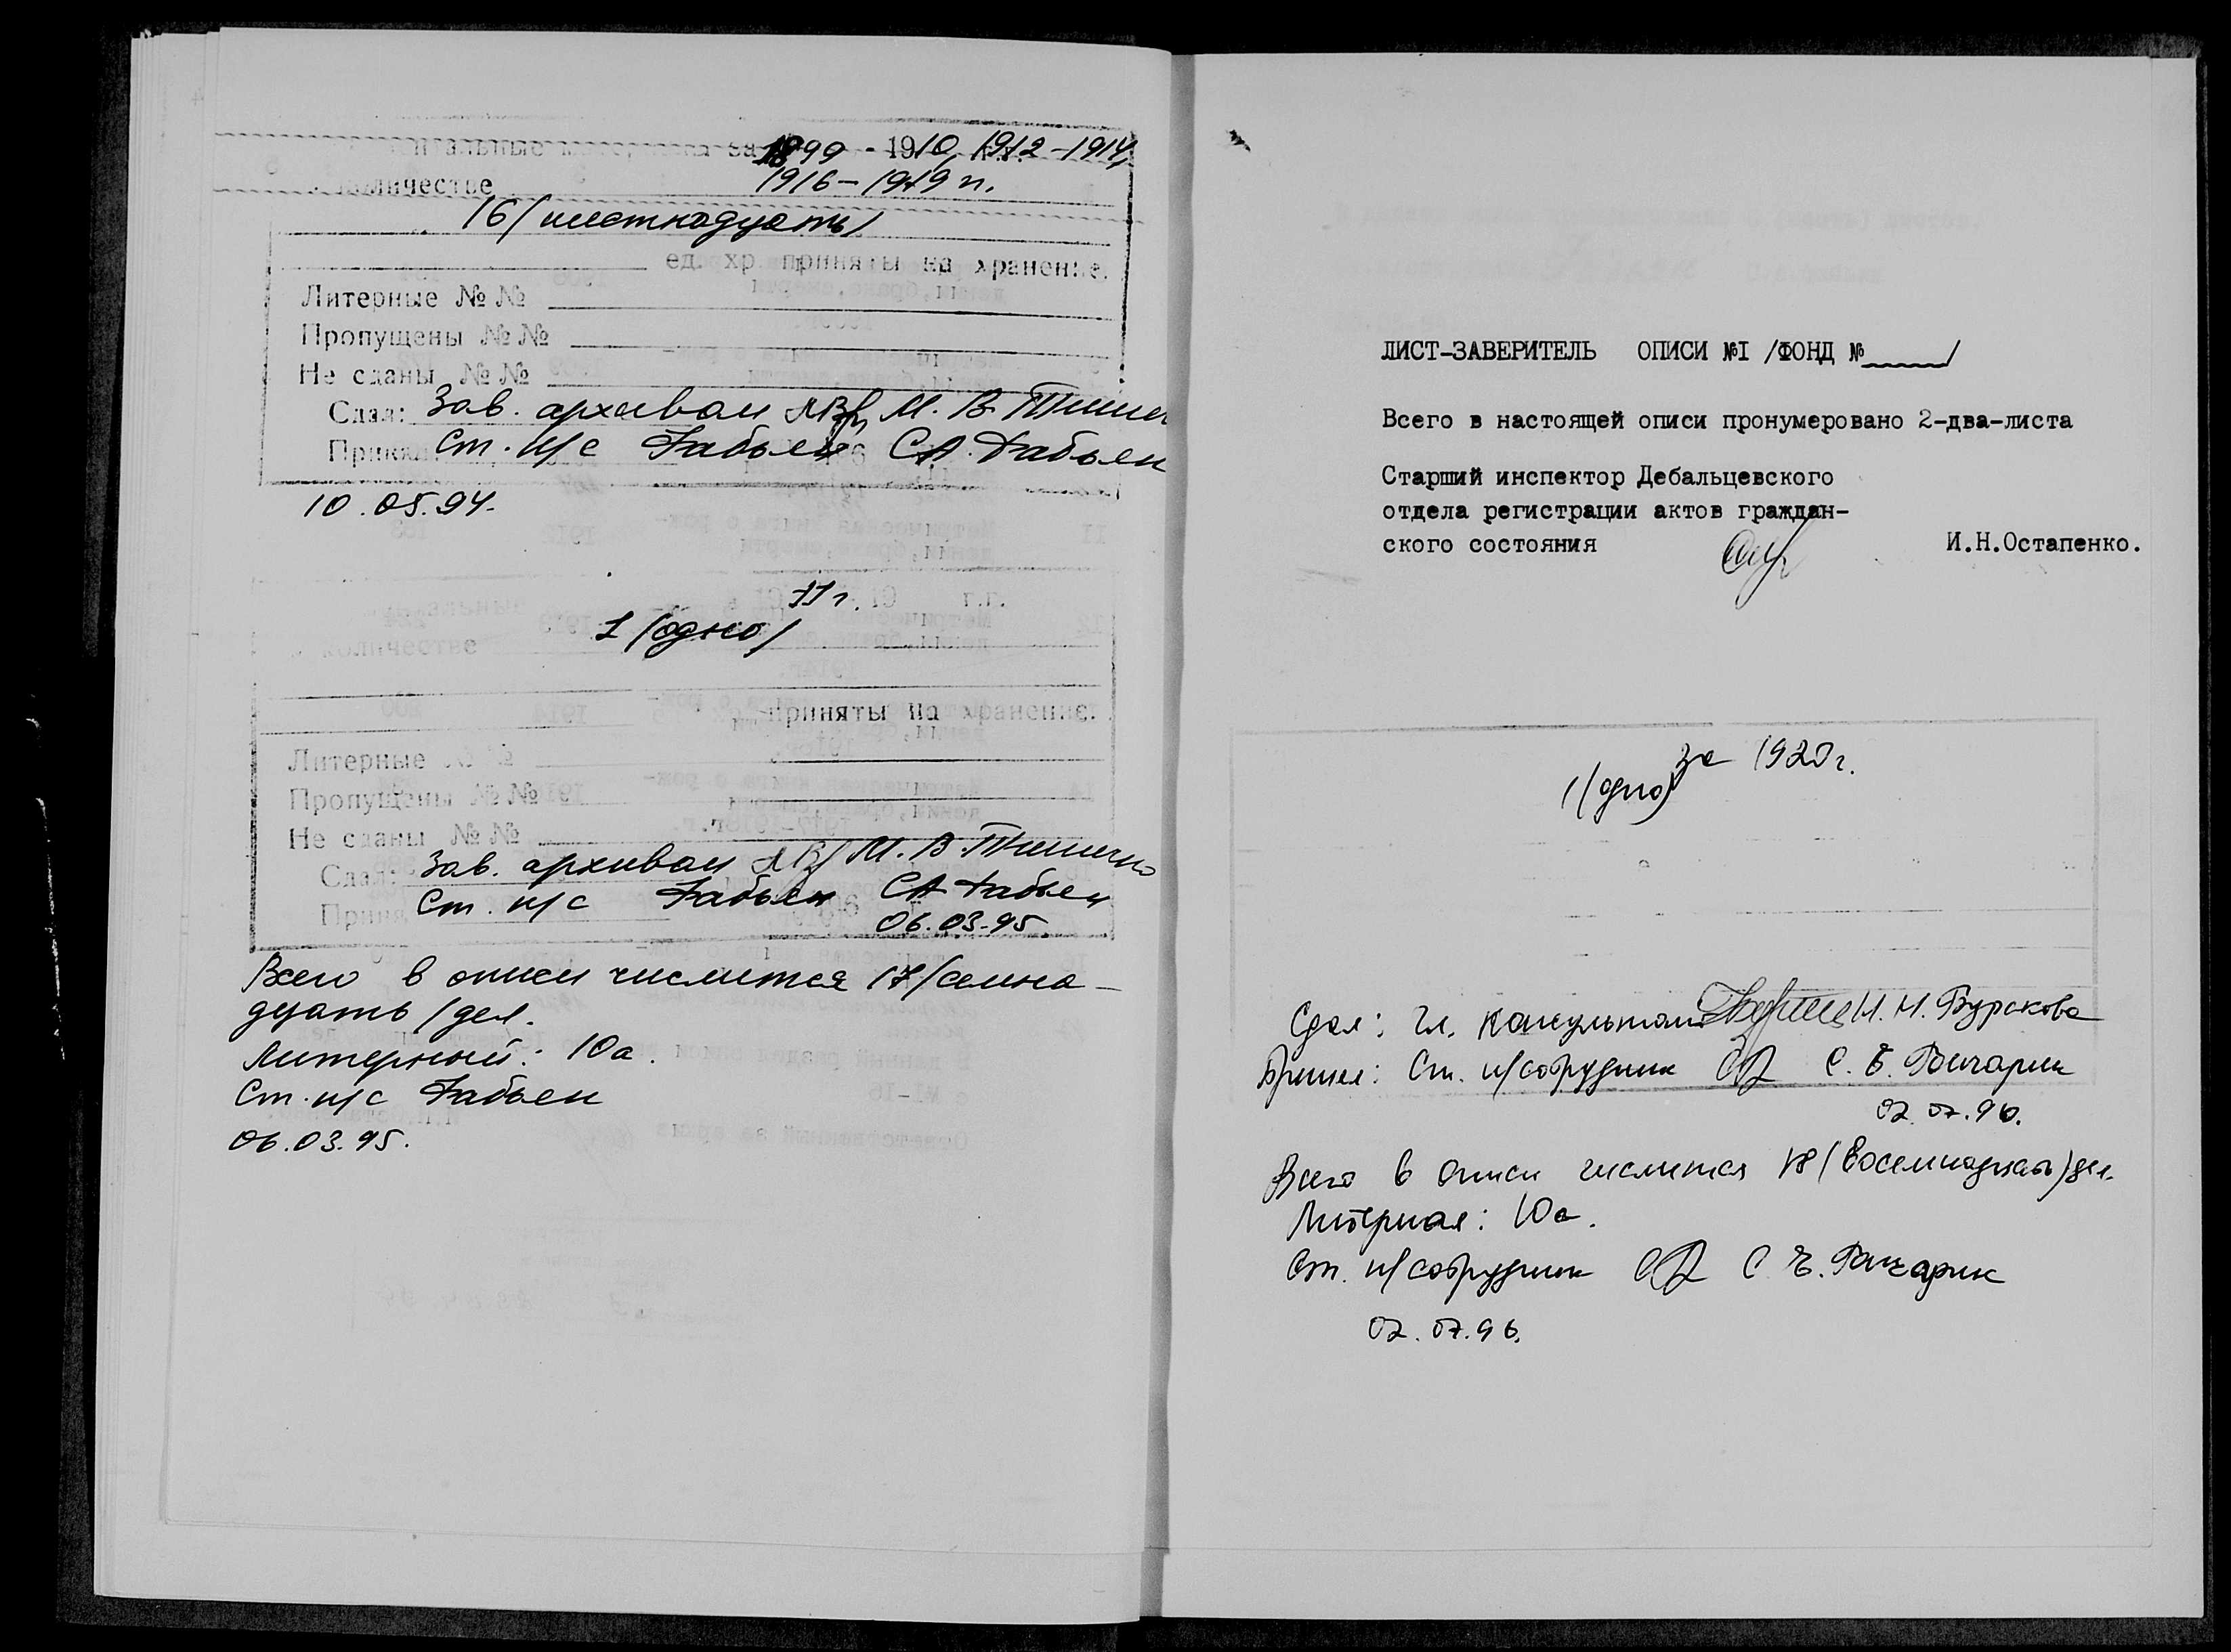 за 1899 - 1910, 1912-1914,
количестве 1916-1919 гг.
16 (шестнадцать)
ед. хр приняты на хранение.
Литерные №№
Пропущены №№
Не сданы №№
Сдал: Зав. архивом М. В.
Принял Ст. н/с Бабьен С.А. Бабьен
10.05.94.
11 г. г.г.
количестве 1 (одно)
приняты на хранение.
Литерные №№
Пропущены №№
Не сданы №№
Сдал: Зав. архивом М. В.
Принял Ст. н/с Бабьен СА Бабьен
06.03.95
Всего в описи числится 17 (семна-
дцать) дел.
Литерный: 10а.
Ст. н/с Бабьен
06.03.95.
ЛИСТ-ЗАВЕРИТЕЛЬ ОПИСИ №I /ФОНД №_____/
Всего в настоящей описи пронумеровано 2-два-листа
Старший инспектор Дебальцевского
отдела регистрации актов граждан-
ского состояния И.Н.Остапенко.
за 1920 г.
1 (одно)
Сдал: Гл. консультант Н. Н. Бурскова
Принял: Ст. н/сотрудник С. Е. Бичарик
02.07.96.
Всего в описи числится 18 (восемнадцать) дел.
Литерная: 10а.
Ст. н/сотрудник С. Е. Бичарик
02.07.96.